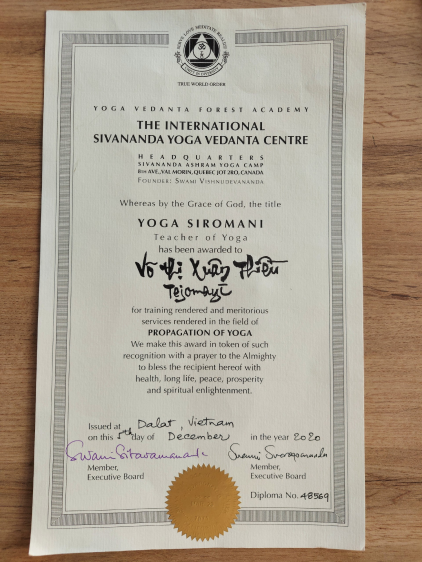 SERVE LOVE MEDITATE REALIZE
UNITY IN DIVERSITY
TRUE WORLD ORDER
YOGA VEDANTA FOREST ACADEMY
THE INTERNATIONAL
SIVANANDA YOGA VEDANTA CENTRE
HEADQUARTERS
SIVANANDA ASHRAM YOGA CAMP
8TH AVE., VAL MORIN, QUEBEC JOT 2RO, CANADA
FOUNDER: SWAMI VISHNUDEVANANDA
Whereas by the Grace of God, the title
YOGA SIROMANI
Teacher of Yoga
has been awarded to
Võ Thị Xuân Thiều
Tejomayi
for training rendered and meritorious
services rendered in the field of
PROPAGATION OF YOGA
We make this award in token of such
recognition with a prayer to the Almighty
to bless the recipient hereof with
health, long life, peace, prosperity
and spiritual enlightenment.
Issued at Dalat, Vietnam
on this 5th day of December in the year 2020
Swami Sitaramananda Swami Swaroopananda
Member, Member,
Executive Board Executive Board
Diploma No. 48569